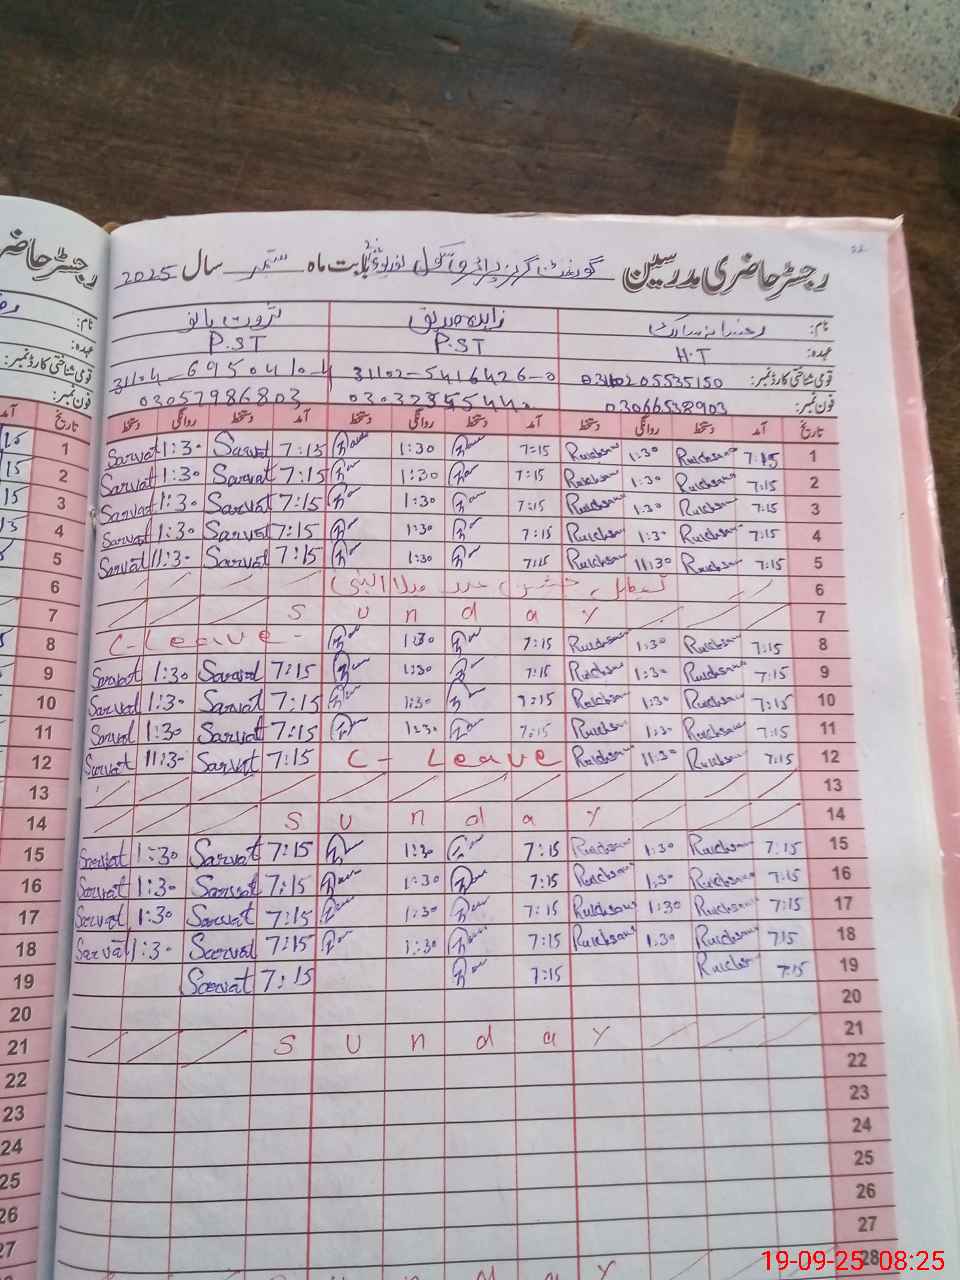 رجسٹر حاضری مدرسین گورنمنٹ گرلز پرائمری سکول بابت ماہ ستمبر سال 2025
نام: رخسانہ مبارک زاہدہ صدیق ثروت بانو
عہدہ: H.T P.ST P.ST
قومی شناختی کارڈ نمبر: 31102-5416426-0 31104-6950410-4
فون نمبر: 03066538903 03057986803
تاریخ آمد دستخط روانگی دستخط آمد دستخط روانگی دستخط آمد دستخط روانگی دستخط تاریخ
1 Sarvat 1:30 Sarvat 7:15 1:30 7:15 Rukhsana 1:30 Rukhsana 7:15 1
2 Sarvat 1:30 Sarvat 7:15 1:30 7:15 Rukhsana 1:30 Rukhsana 7:15 2
3 Sarvat 1:30 Sarvat 7:15 1:30 7:15 Rukhsana 1:30 Rukhsana 7:15 3
4 Sarvat 1:30 Sarvat 7:15 1:30 7:15 Rukhsana 1:30 Rukhsana 7:15 4
5 Sarvat 11:30 Sarvat 7:15 1:30 7:15 Rukhsana 11:30 Rukhsana 7:15 5
6 تعطیل جشن عید میلاد النبی 6
7 Sunday 7
8 C-Leave 1:30 7:15 Rukhsana 1:30 Rukhsana 7:15 8
9 Sarvat 1:30 Sarvat 7:15 1:30 7:15 Rukhsana 1:30 Rukhsana 7:15 9
10 Sarvat 1:30 Sarvat 7:15 1:30 7:15 Rukhsana 1:30 Rukhsana 7:15 10
11 Sarvat 1:30 Sarvat 7:15 1:30 7:15 Rukhsana 1:30 Rukhsana 7:15 11
12 Sarvat 11:30 Sarvat 7:15 C-Leave Rukhsana 11:30 Rukhsana 7:15 12
13 13
14 Sunday 14
15 Sarvat 1:30 Sarvat 7:15 1:30 7:15 Rukhsana 1:30 Rukhsana 7:15 15
16 Sarvat 1:30 Sarvat 7:15 1:30 7:15 Rukhsana 1:30 Rukhsana 7:15 16
17 Sarvat 1:30 Sarvat 7:15 1:30 7:15 Rukhsana 1:30 Rukhsana 7:15 17
18 Sarvat 1:30 Sarvat 7:15 1:30 7:15 Rukhsana 1:30 Rukhsana 7:15 18
19 Sarvat 7:15 7:15 Rukhsana 7:15 19
20 20
21 Sunday 21
22 22
23 23
24 24
25 25
26 26
27 27
28
19-09-25 08:25